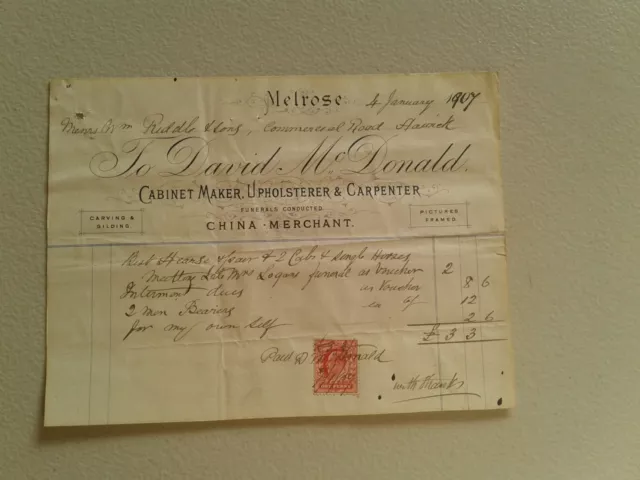 Melrose 4 January 1907
Messrs Wm Riddle & Sons, Commercial Road Hawick
To David McDonald.
CABINET MAKER, UPHOLSTERER & CARPENTER
FUNERALS CONDUCTED.
CHINA · MERCHANT.
CARVING & GILDING
PICTURES FRAMED
Hearse & 2 Cabs & Single Horses 2
Mrs Logans funeral as Voucher 8 6
Interment dues as Voucher 12
2 Men Bearers 6/
for my own self 2 6
£ 3 3
Paid D McDonald
with thanks